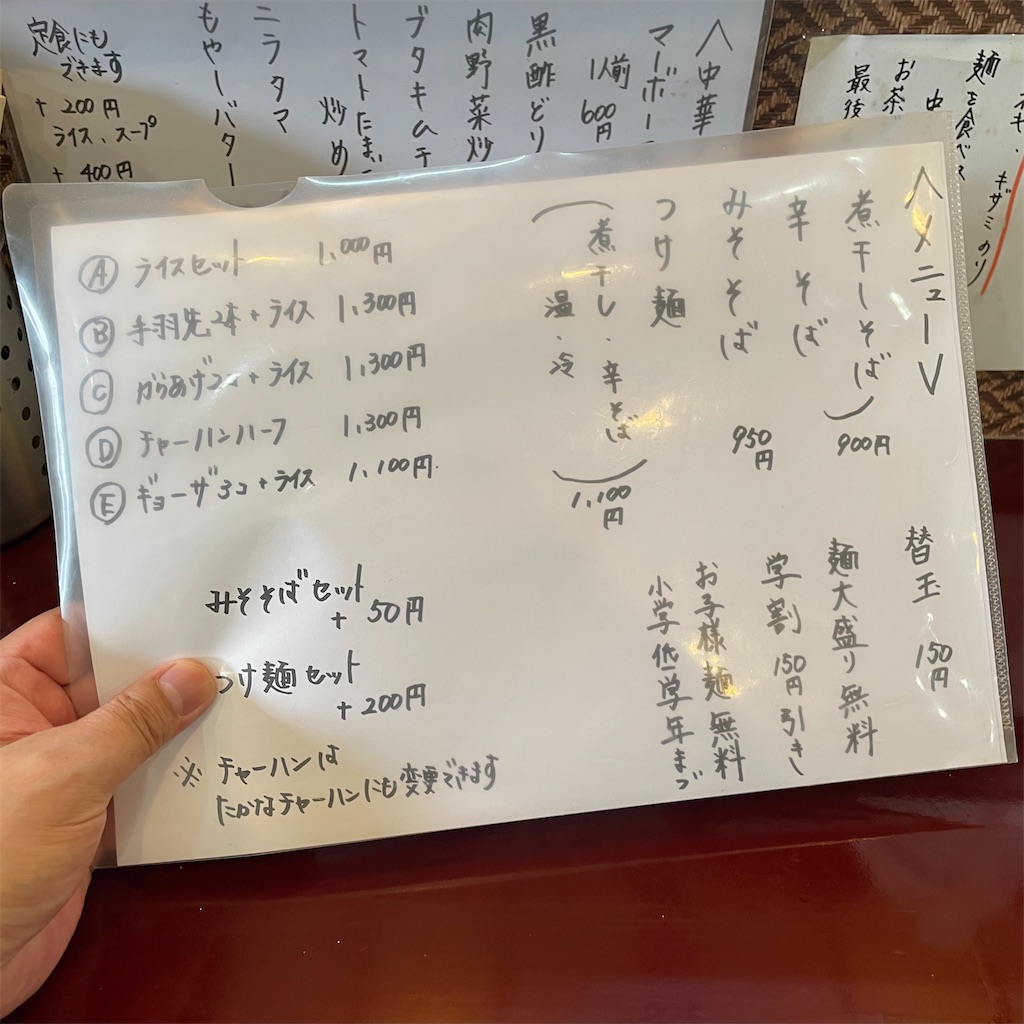 ＜メニュー＞
煮干しそば
辛そば
900円
みそそば
950円
つけ麺
(煮干し・辛そば
温・冷)
1,100円
替玉 150円
麺大盛り無料
学割 150円引き
お子様麺無料
小学低学年まで
Ⓐ ライスセット 1,000円
Ⓑ 手羽先2本+ライス 1,300円
Ⓒ からあげ2コ+ライス 1,300円
Ⓓ チャーハンハーフ 1,300円
Ⓔ ギョーザ3コ+ライス 1,100円
みそそばセット
+ 50円
つけ麺セット
+200円
※ チャーハンは
たかなチャーハンにも変更できます
＜中華
マーボー
1人前
600円
黒酢どり
肉野菜炒
ブタキムチ
トマトたま
炒め
ニラタマ
もやしバター
定食にも
できます
+ 200円
ライス、スープ
+ 400円
ギザミのり
麺を食べ
お茶
中
最後